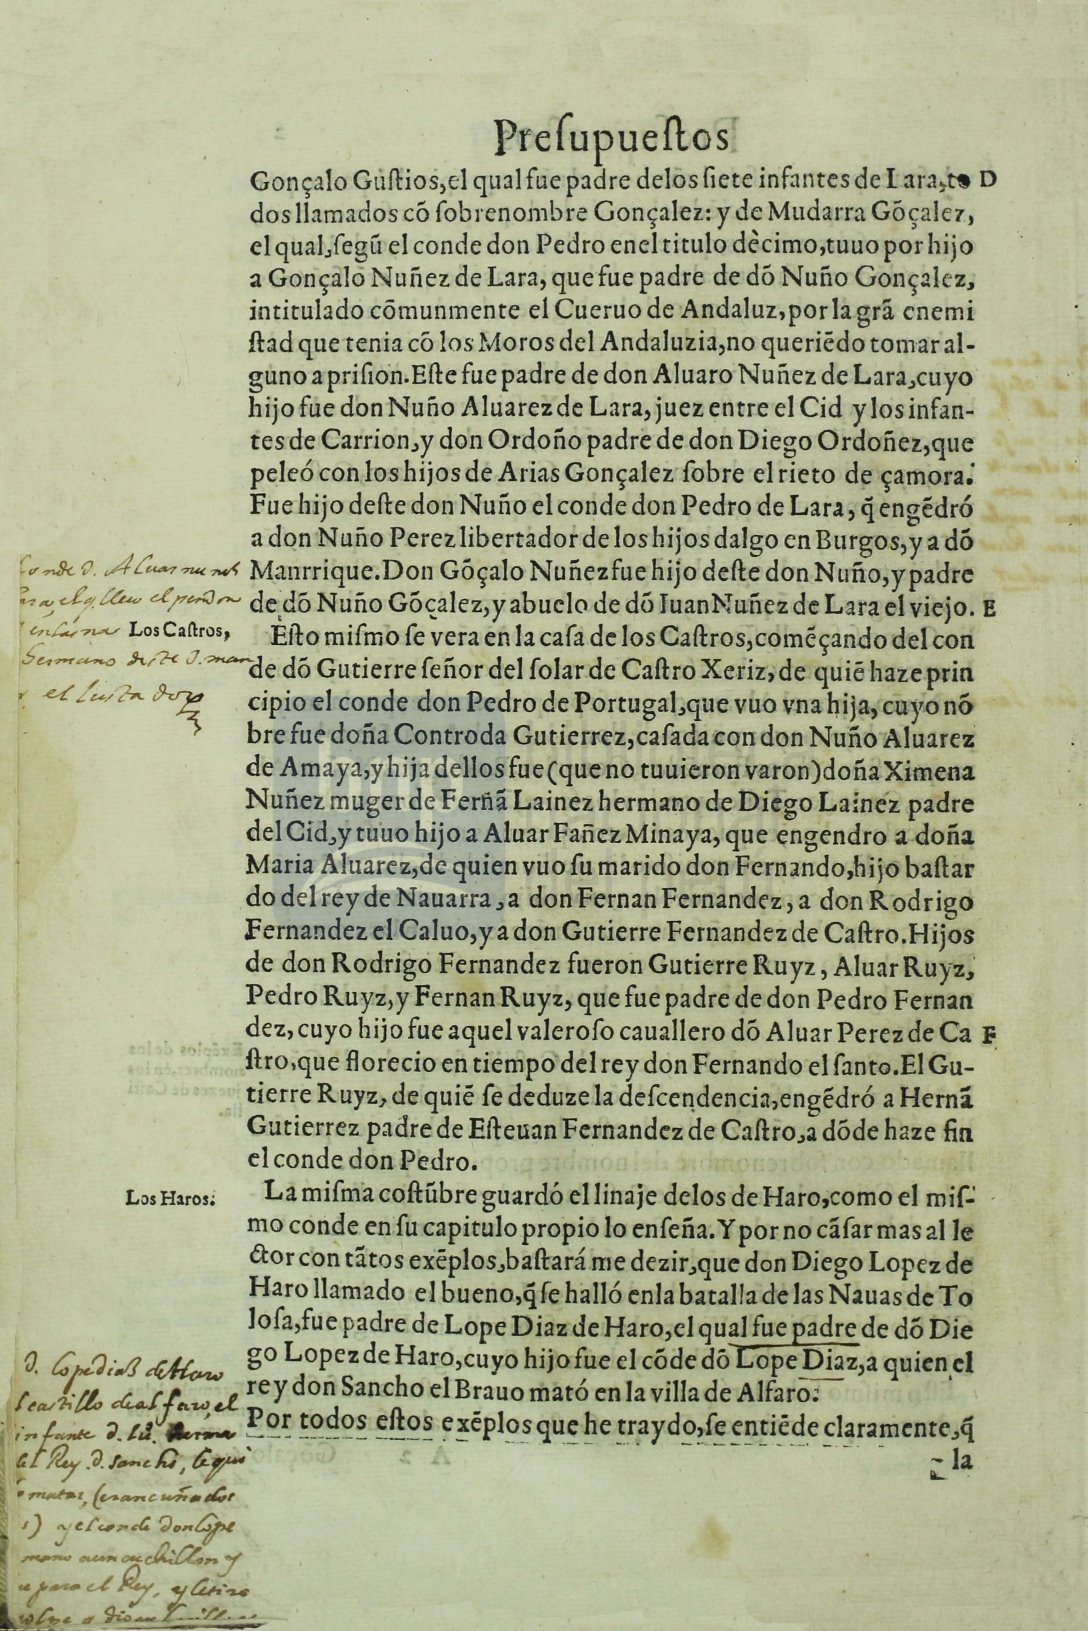 Presupuestos
Gonçalo Gustios, el qual fue padre delos siete infantes de Lara, to D
dos llamados cõ sobrenombre Gonçalez: y de Mudarra Gõçalez,
el qual, segũ el conde don Pedro enel titulo dècimo, tuuo por hijo
a Gonçalo Nuñez de Lara, que fue padre de dõ Nuño Gonçalez,
intitulado cõmunmente el Cueruo de Andaluz, por la grã enemi
stad que tenia cõ los Moros del Andaluzia, no queriẽdo tomar al-
guno a prision. Este fue padre de don Aluaro Nuñez de Lara, cuyo
hijo fue don Nuño Aluarez de Lara, juez entre el Cid y los infan-
tes de Carrion, y don Ordoño padre de don Diego Ordoñez, que
peleó con los hijos de Arias Gonçalez sobre el rieto de çamora.
Fue hijo deste don Nuño el conde don Pedro de Lara, q̃ engẽdró
a don Nuño Perez libertador de los hijos dalgo en Burgos, y a dõ
Manrrique. Don Gõçalo Nuñez fue hijo deste don Nuño, y padre
de dõ Nuño Gõçalez, y abuelo de dõ Iuan Nuñez de Lara el viejo. E
Los Castros,
Esto mismo se vera en la casa de los Castros, comẽçando del con
de dõ Gutierre señor del solar de Castro Xeriz, de quiẽ haze prin
cipio el conde don Pedro de Portugal, que vuo vna hija, cuyo nõ
bre fue doña Controda Gutierrez, casada con don Nuño Aluarez
de Amaya, y hija dellos fue (que no tuuieron varon) doña Ximena
Nuñez muger de Ferñã Lainez hermano de Diego Lainez padre
del Cid, y tuuo hijo a Aluar Fañez Minaya, que engendro a doña
Maria Aluarez, de quien vuo su marido don Fernando, hijo bastar
do del rey de Nauarra, a don Fernan Fernandez, a don Rodrigo
Fernandez el Caluo, y a don Gutierre Fernandez de Castro. Hijos
de don Rodrigo Fernandez fueron Gutierre Ruyz, Aluar Ruyz,
Pedro Ruyz, y Fernan Ruyz, que fue padre de don Pedro Fernan
dez, cuyo hijo fue aquel valeroso cauallero dõ Aluar Perez de Ca F
stro, que florecio en tiempo del rey don Fernando el santo. El Gu-
tierre Ruyz, de quiẽ se deduze la descendencia, engẽdró a Hernã
Gutierrez padre de Esteuan Fernandez de Castro, a dõde haze fin
el conde don Pedro.
Los Haros.
La misma costũbre guardó el linaje delos de Haro, como el mis-
mo conde en su capitulo propio lo enseña. Y por no cãsar mas al le
ctor con tãtos exẽplos, bastará me dezir, que don Diego Lopez de
Haro llamado el bueno, q̃ se halló enla batalla de las Nauas de To
losa, fue padre de Lope Diaz de Haro, el qual fue padre de dõ Die
go Lopez de Haro, cuyo hijo fue el cõde dõ Lope Diaz, a quien el
rey don Sancho el Brauo mató en la villa de Alfaro.
Por todos estos exẽplos que he traydo, se entiẽde claramente, q̃
la
el perdon
d. Lope diaz de Haro
castillo de alfaro, el
infante d.
el Rey d. sancho,
y el conde don Lope
para el Rey,